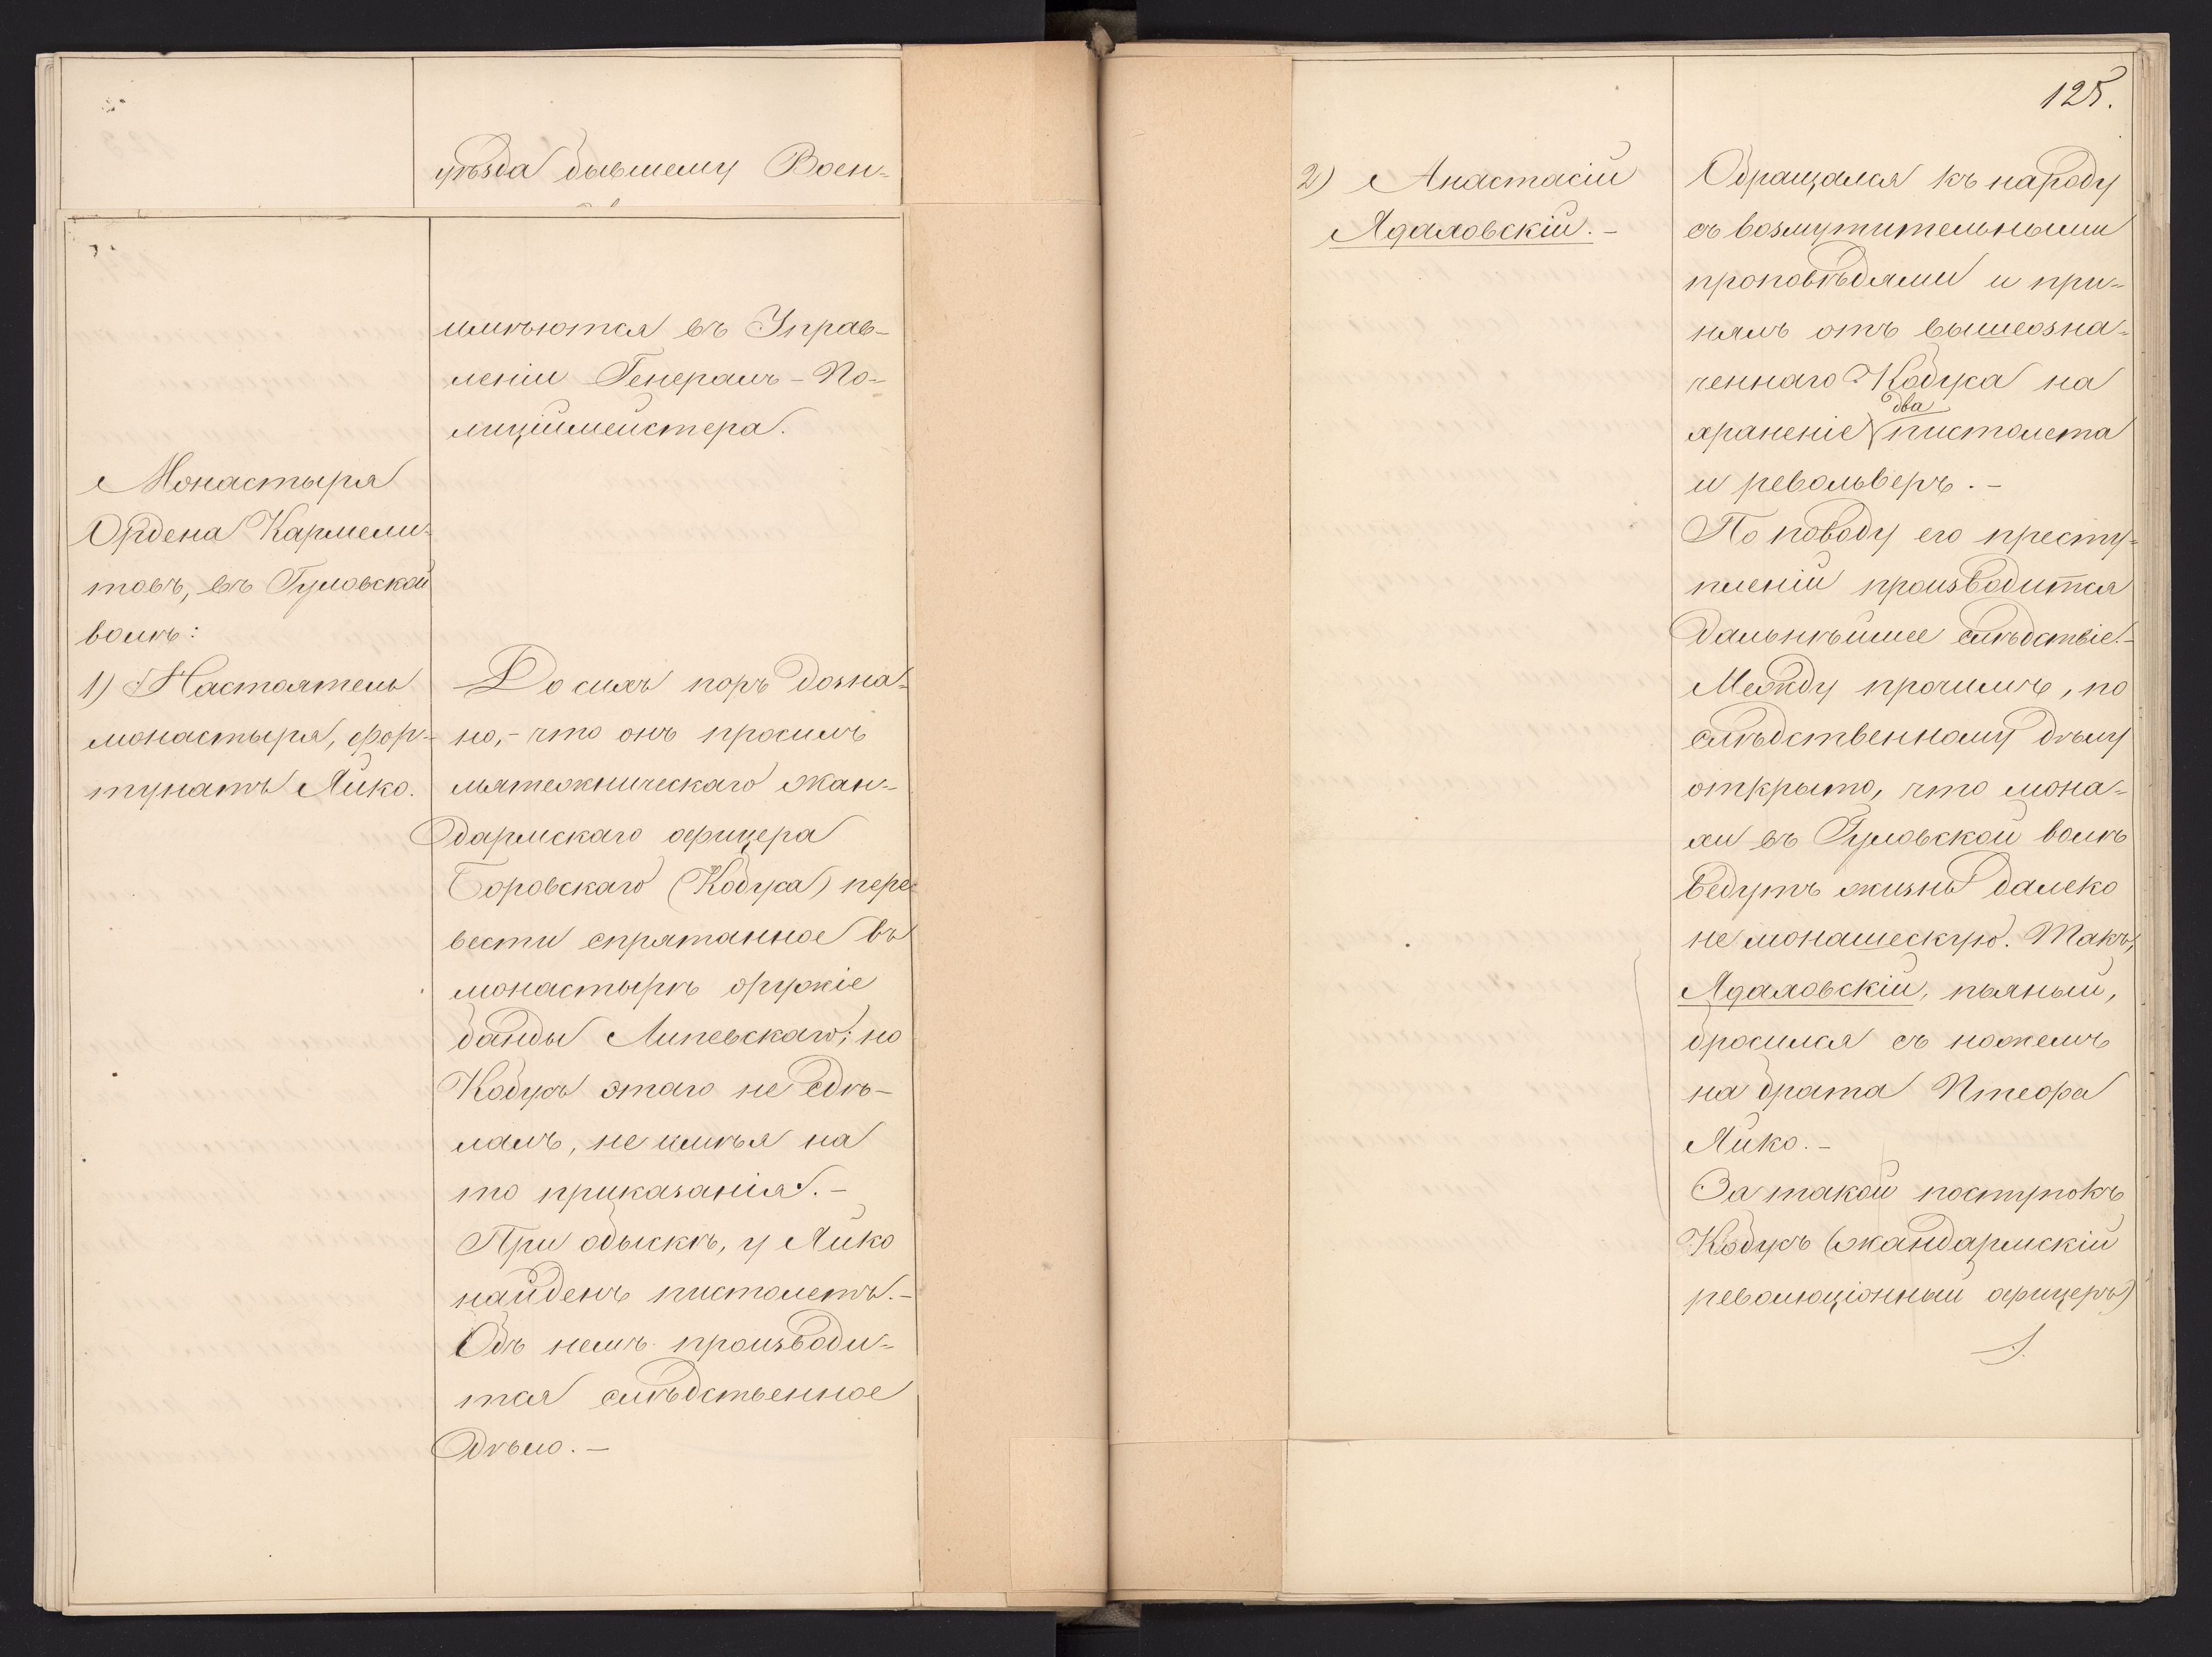 уѣзда бывшему Воен-
имѣются въ Управ-
леніи Генералъ-По-
лиціймейстера.
Монастыря
Ордена Кармели-
товъ, въ Гуловской
волѣ:
1) Настоятель
монастыря, фор-
тунатъ Яйко.
До сихъ поръ дозна-
но,- что онъ просилъ
мятежническаго жан-
дармскаго офицера
Боровскаго (Кобуса) пере-
вести спрятанное въ
монастырѣ оружіе
банды Липевскаго; но
Кобусъ этаго не сдѣ-
лалъ, не имѣя на
то приказанія.-
При обыскѣ, у Яйко
найденъ пистолетъ.-
Объ немъ производи-
тся слѣдственное
дѣло.-
125.
2) Анастасій
Ядаховскій.-
Обращался къ народу
съ возмутительными
проповѣдями и при-
нялъ отъ вышеозна-
ченнаго Кобуса на
храненіе два пистолета
и револьверъ.-
По поводу его престу-
пленій производится
дальнѣйшее слѣдствіе.-
Между прочимъ, по
слѣдственному дѣлу
открыто, что мона-
хи въ Гуловской волѣ
ведутъ жизнь далеко
не монашескую. Такъ,
Ядаховскій, пьяный,
бросился съ ножемъ
на брата Ктеора
Яйко.-
За такой поступокъ
Кобусъ (жандармскій
революціонный офицеръ)